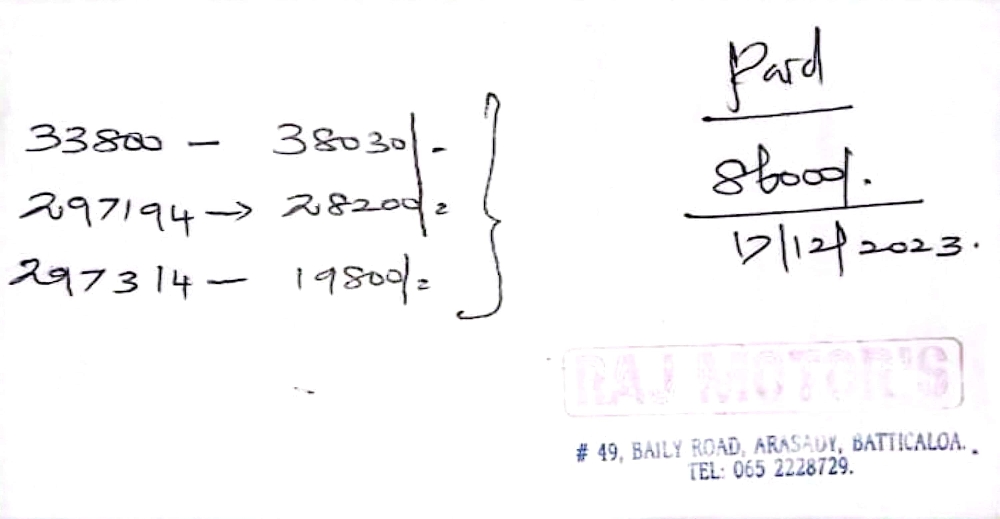 33800 - 38030/-
297194 → 28200/=
297314 - 19800/=
Paid
86000/.
17/12/2023.
RAJ MOTOR'S
# 49, BAILY ROAD, ARASADY, BATTICALOA.
TEL: 065 2228729.